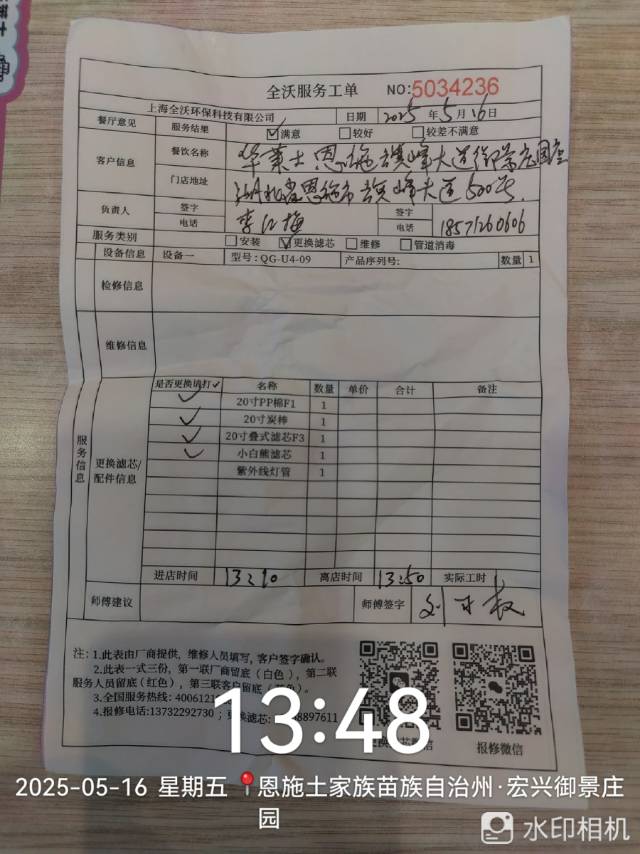 全沃服务工单 NO:5034236
上海全沃环保科技有限公司 日期 2025年5月16日
餐厅意见 服务结果 ☑满意 □较好 □较差不满意
客户信息 餐饮名称 华莱士恩施旗峰大道御景庄园店
门店地址 湖北省恩施市旗峰大道500号
负责人 签字 李红梅 签字
电话 电话 18571260606
服务类别 □安装 ☑更换滤芯 □维修 □管道消毒
设备信息 设备一 型号:QG-U4-09 产品序列号: 数量 1
检修信息
维修信息
服务信息
更换滤芯/配件信息
是否更换填打✓ 名称 数量 单价 合计 备注
✓ 20寸PP棉F1 1
✓ 20寸炭棒 1
✓ 20寸叠式滤芯F3 1
✓ 小白熊滤芯 1
紫外线灯管 1
进店时间 13:10 离店时间 13:50 实际工时
师傅建议 师傅签字
注:1.此表由厂商提供,维修人员填写,客户签字确认。
2.此表一式三份,第一联厂商留底(白色),第二联
服务人员留底(红色),第三联客户留底
3.全国服务热线:4006121
4.报修电话:13732292730;更换滤芯: 8897611
报修微信
13:48
2025-05-16 星期五 恩施土家族苗族自治州·宏兴御景庄
园
水印相机